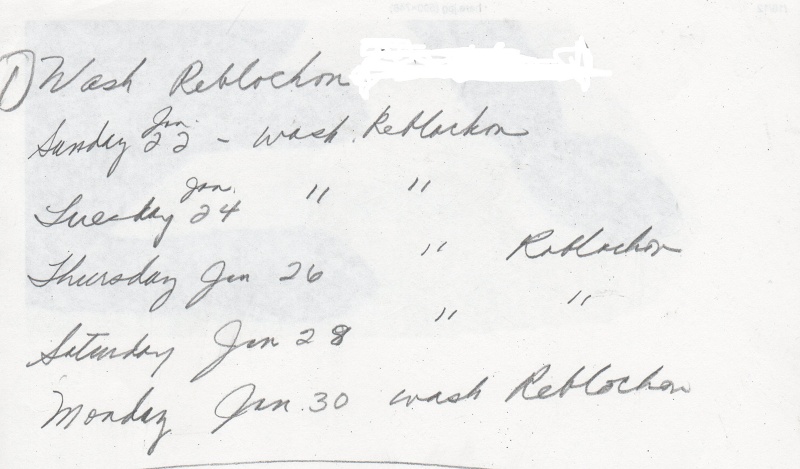 1) Wash Reblochon
Sunday Jan. 22 - wash Reblochon
Tuesday Jan. 24 " "
Thursday Jan 26 " Roblochon
Saturday Jan 28 " "
Monday Jan 30 wash Reblochon